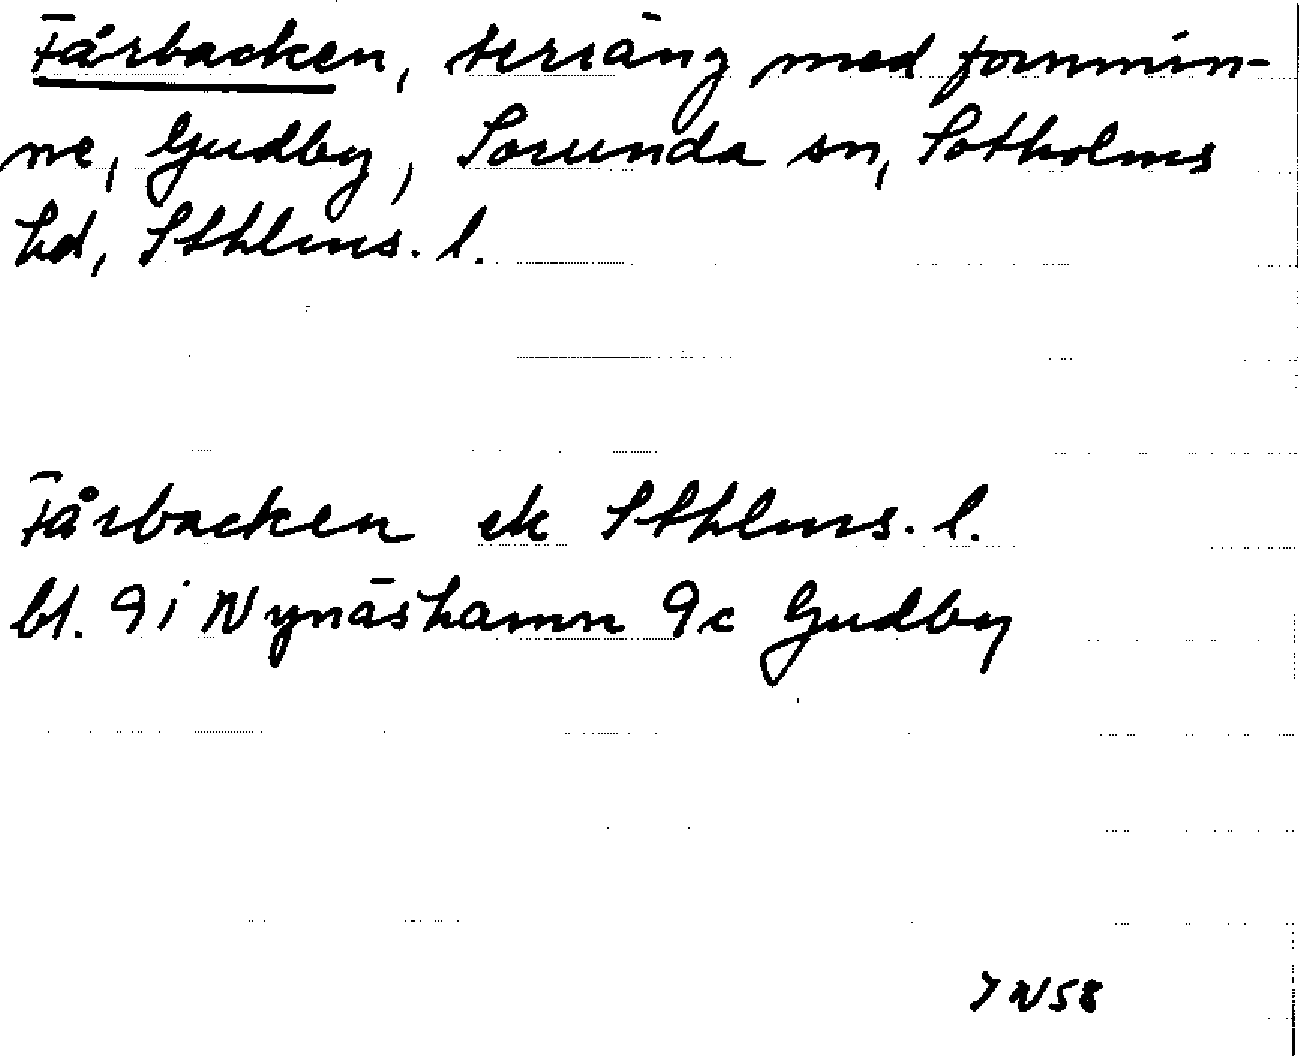 Fårbacken, terräng med fornmin-
ne, Gudby, Sorunda sn, Sotholms
hd, Sthlms. l.
Fårbacken ek Sthlms. l.
bl. 9i Nynäshamn 9c Gudby
N58